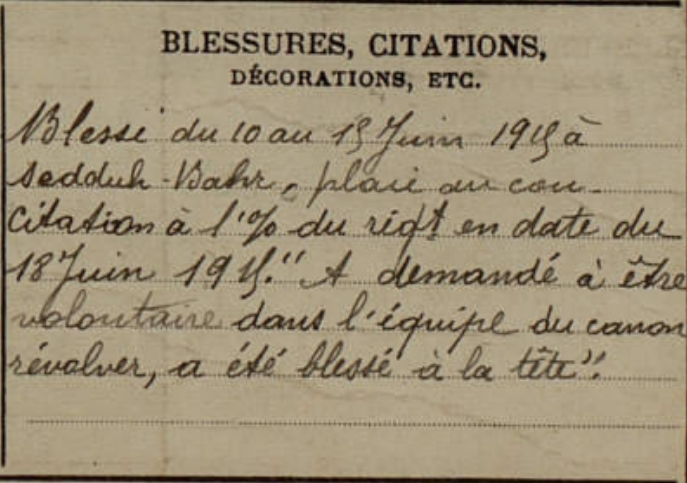 BLESSURES, CITATIONS,
DÉCORATIONS, ETC.
Blessé du 10 au 15 Juin 1915 à
Sedduh-Bahr, plaie au cou.
Citation à l'% du rég.t en date du
18 Juin 1915." A demandé à être
volontaire dans l'équipe du canon
révolver, a été blessé à la tête".